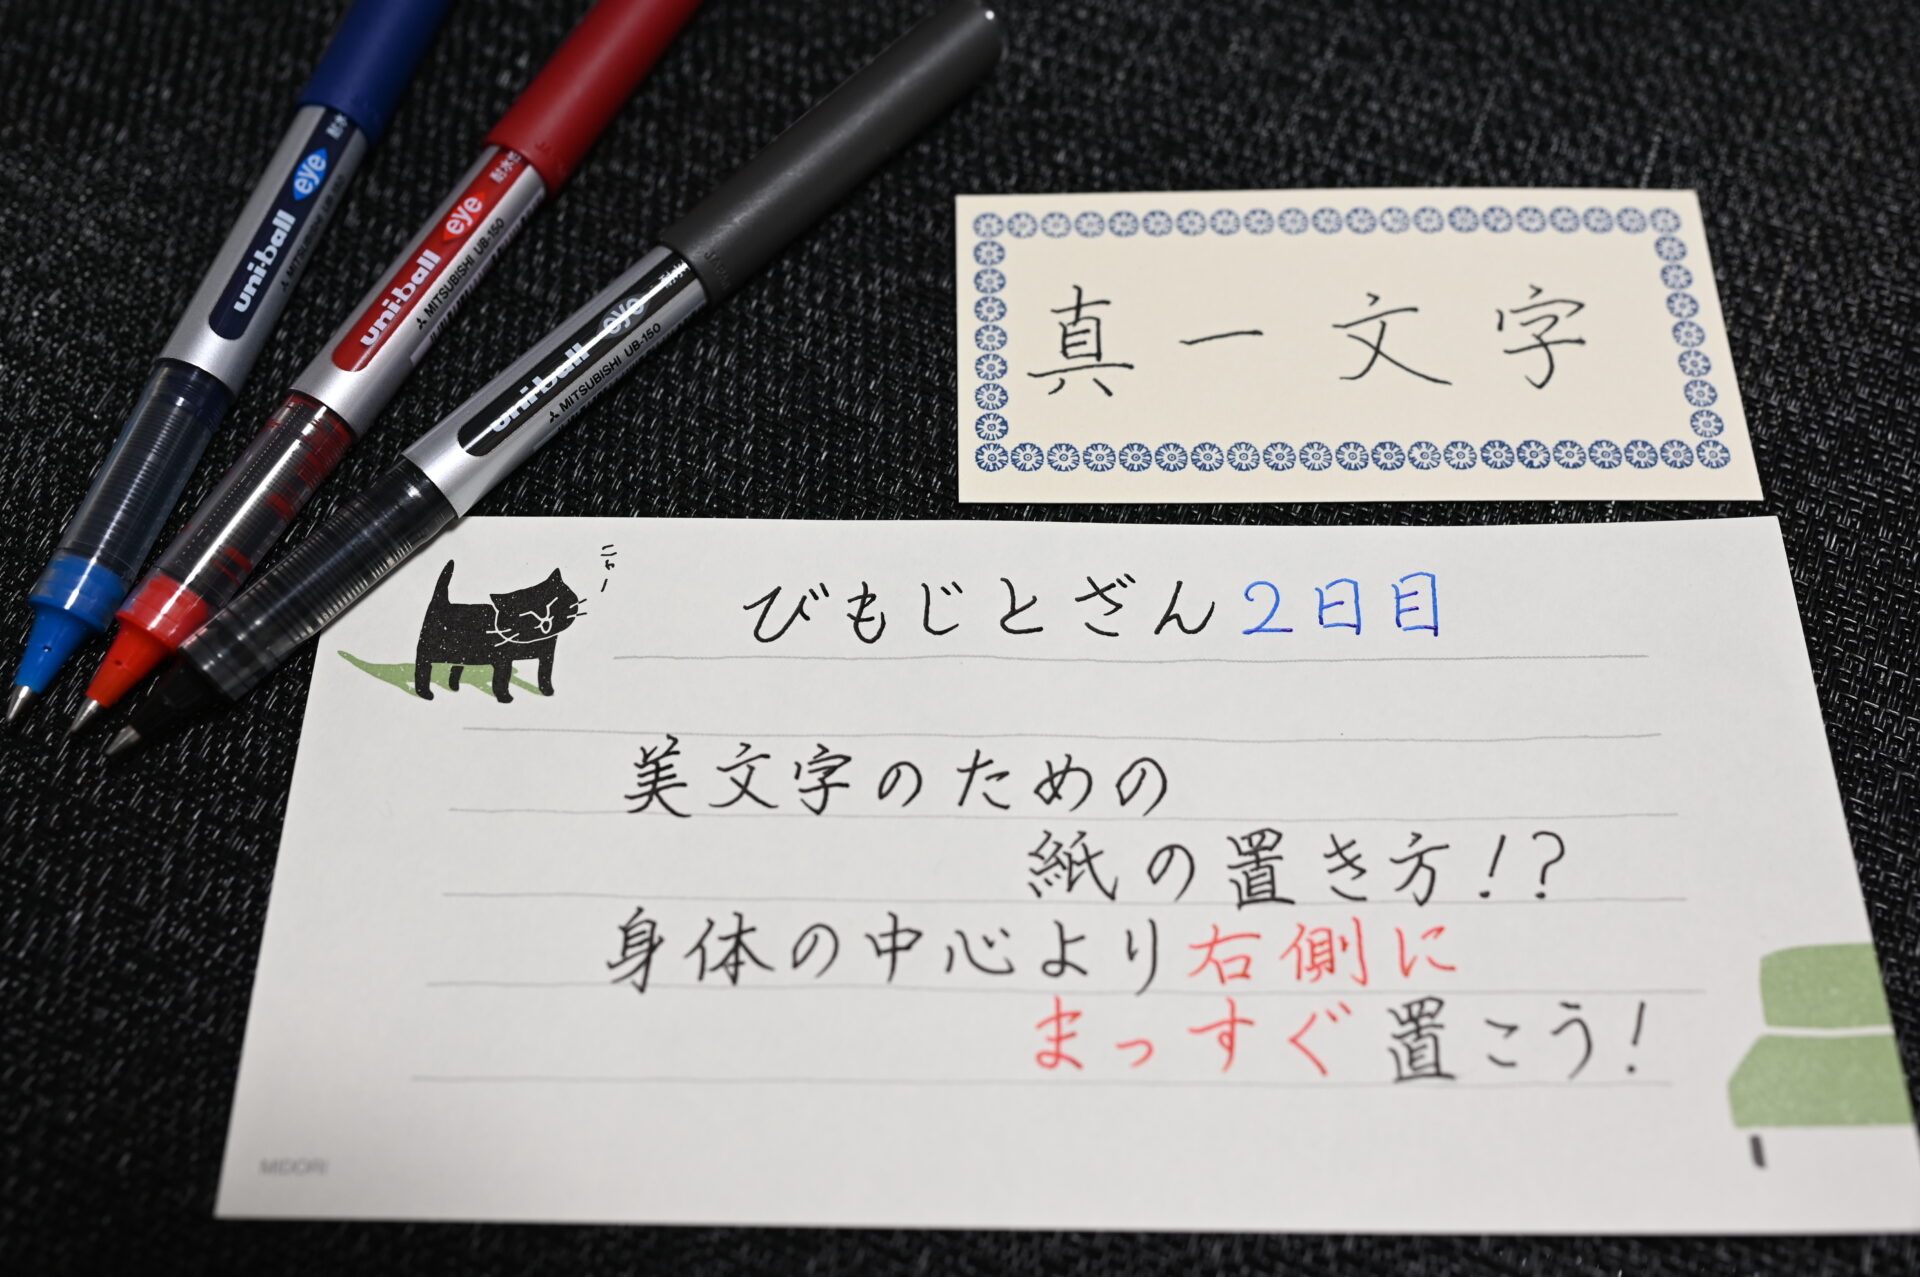 uni-ball eye 耐水
MITSUBISHI UB-150
uni-ball eye 耐水性
MITSUBISHI UB-150
JAPAN
uni-ball eye
MITSUBISHI UB-150
真一文字
ニャー
びもじとざん2日目
美文字のための
紙の置き方!?
身体の中心より右側に
まっすぐ置こう!
MIDORI